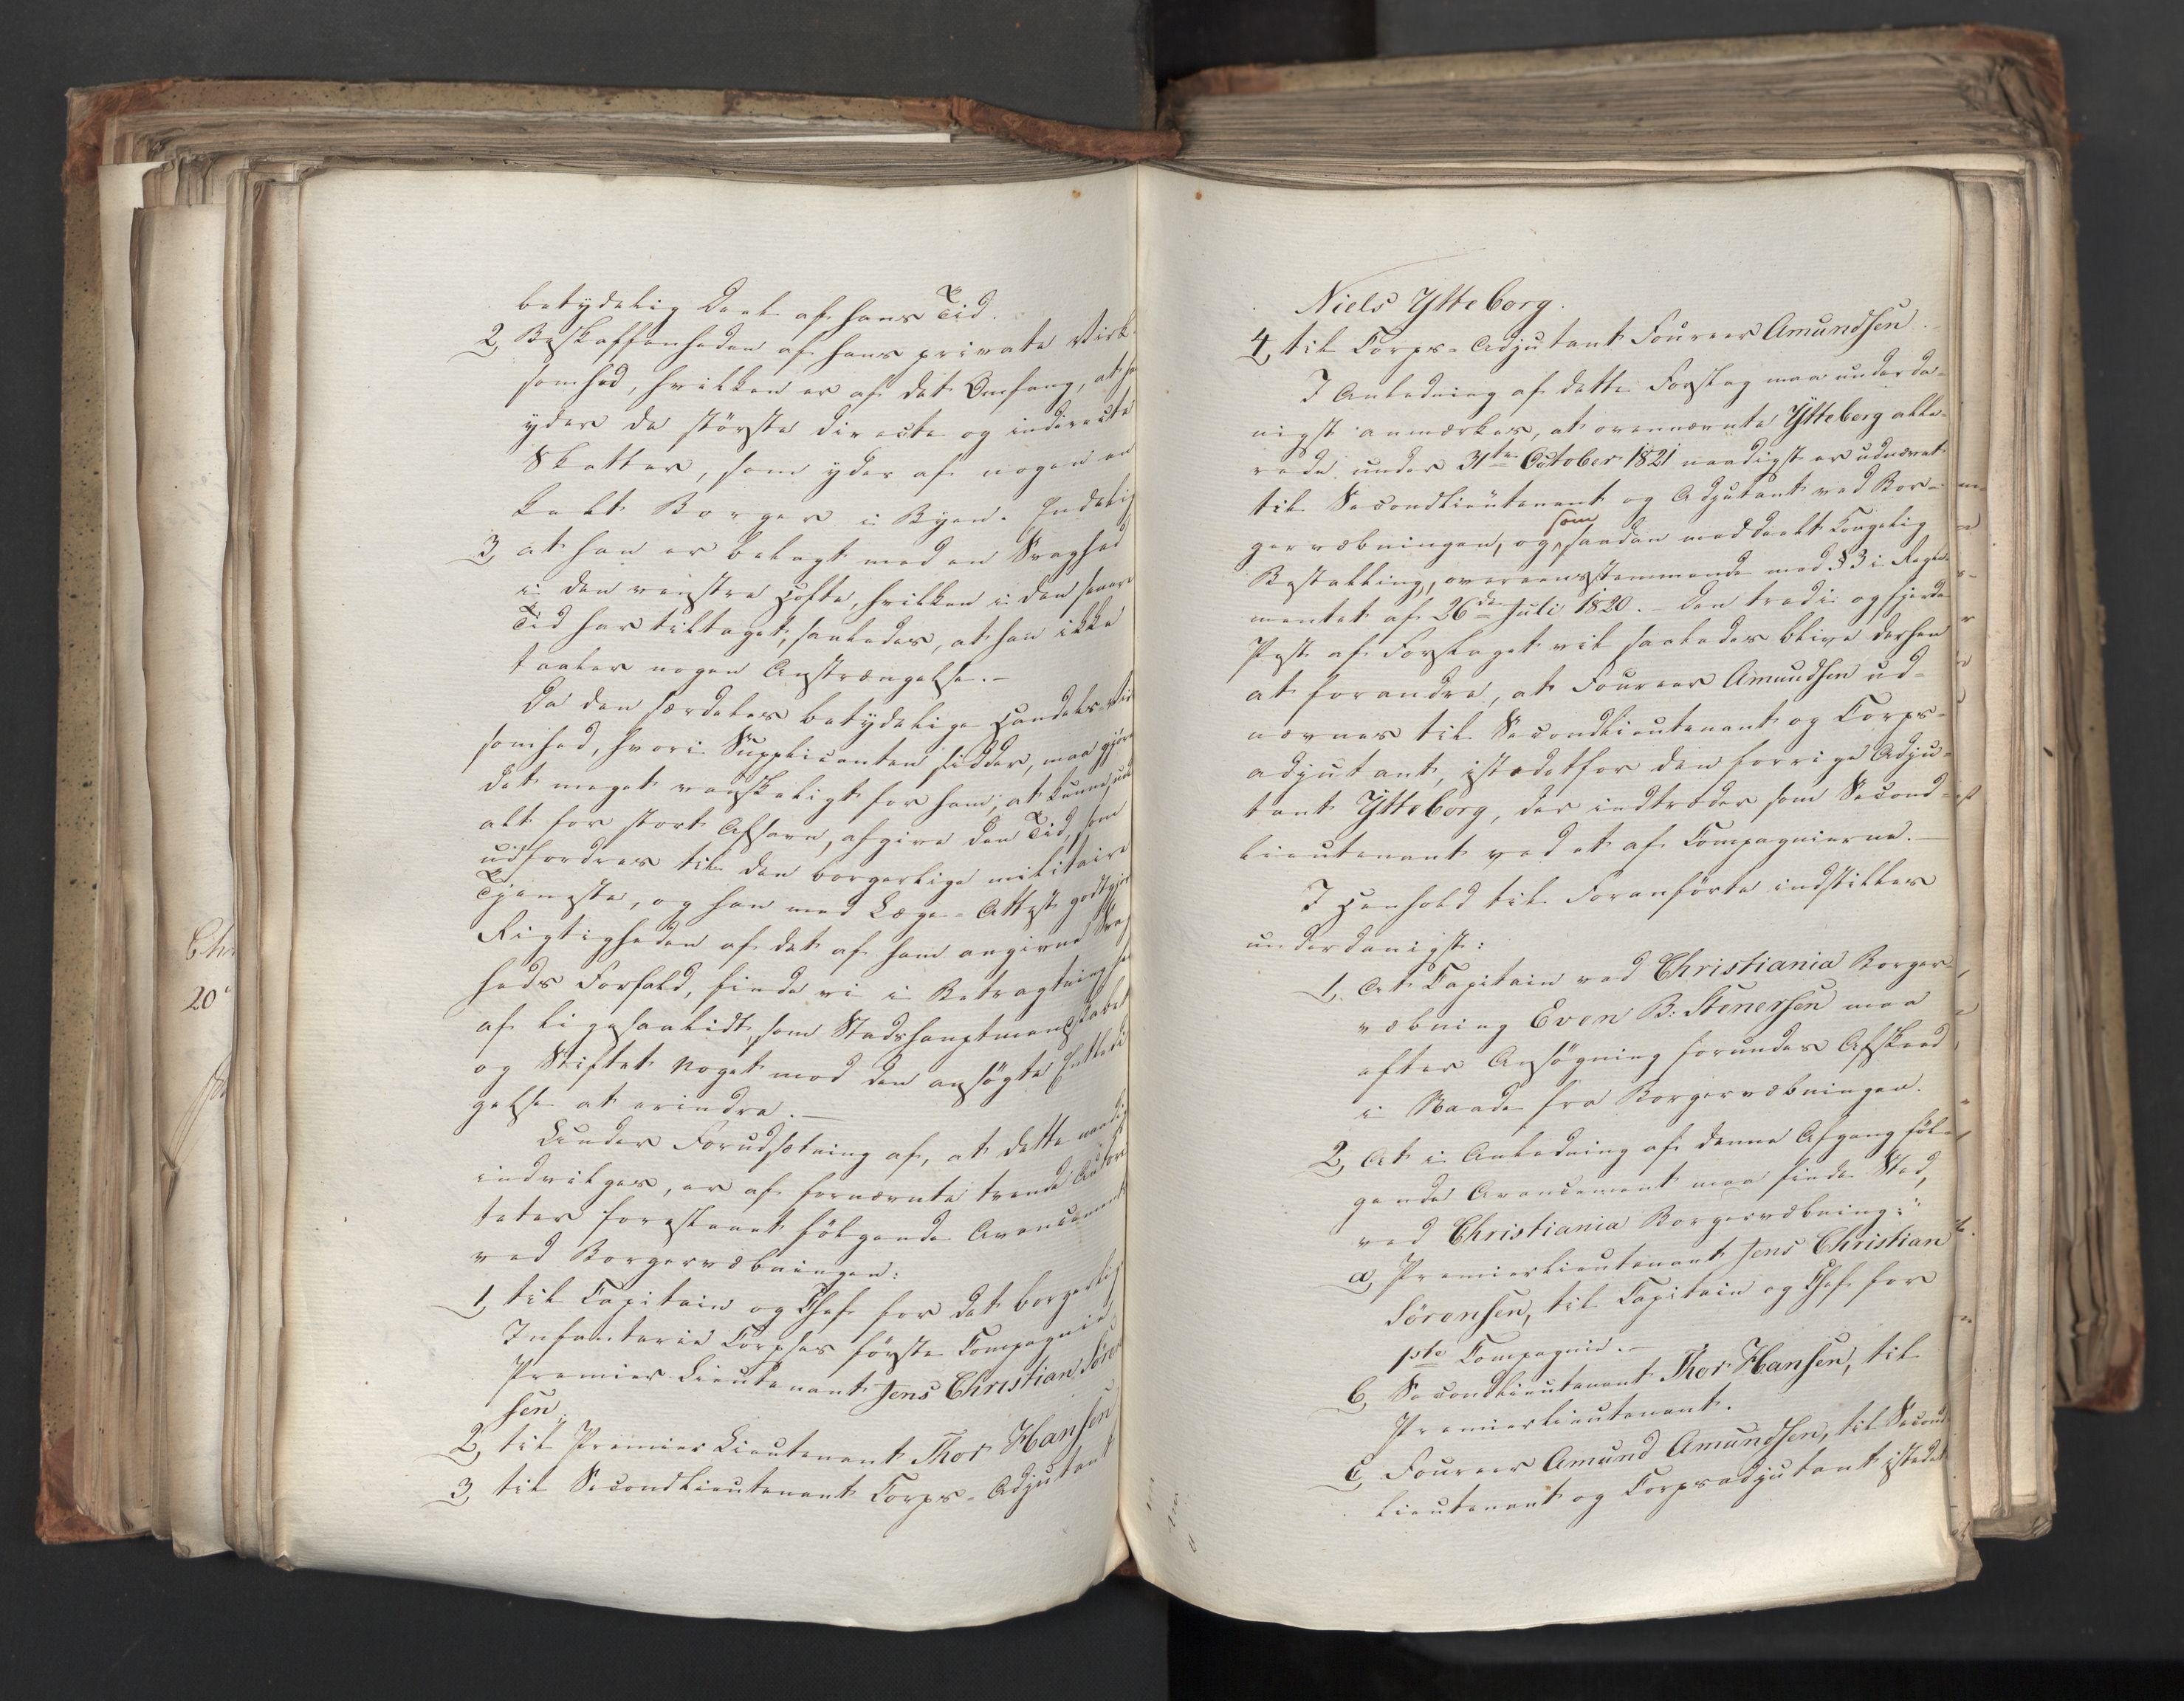 betydelig Deel af hans Tid.
2, Beskaffenheden af hans private Virk-
somhed, hvilken er af det Omfang, at han
yder de største directe og indirecte
Skatter, som ydes af nogen en-
kelt Borger i Byen. Endelig
3, at han er belagt med en Svaghed
i den venstre Hofte, hvilken i den senere
Tid har tiltaget, saaledes, at han ikke
taaler nogen Anstrængelse.-
Da den særdeles betydelige Handels-Virk
somhed, hvori Supplicanten sidder, maa gjøre
det meget vanskeligt for ham, at kunne, uden
alt for stort Afsavn, afgive den Tid, som
udfordres til den borgerlige militaire
Tjeneste, og han med Læge-Attest godtgjør
Rigtigheden af det af ham angivne Svag
heds Forhold, finde vi i Betragtning her
af ligesaalidt, som Stadshauptmandskabet
og Stiftet noget mod den ansøgte Entledi
gelse at erindre.-
Under Forudsætning af, at dette naadigst
indvilges, er af fornævnte tvende Autori
teter foreslaaet følgende Avancement
ved Borgervæbningen:
1, til Capitain og Chef for det borgerlige
Infanterie Corpses første Compagnie
Premier Lieutenant Jens Christian Sören
sen.
2, til Premier Lieutenant Thor Hansen
3, til Secondlieutenant Corps-Adjutant
Chr
20
Niels Ytteborg.
4, til Corps-Adjutant Foureer Amundsen.
I Anledning af dette Forslag maa underda-
nigst anmærkes, at ovennævnte Ytteborg alle-
rede under 31te October 1821 naadigst er udnævnt
til Secondlieutenant og Adjutant ved Bor-
gervæbningen, og som saadan meddeelt Kongelig
Bestalling, overeensstemmende med § 3 i Regle-
mentet af 26de Juli 1820.- Den tredie og fjerde
Post af Forslaget vil saaledes blive derhen
at forandre, at Foureer Amundsen ud-
nævnes til Secondlieutenant og Corps-
adjutant, istedetfor den forrige Adju-
tant Ytteborg, der indtræder som Second-
lieutenant ved et af Compagnierne.-
I Henhold til Foranførte indstilles
underdanigst:
1. At Capitain ved Christiania Borger-
væbning Even B: Stenersen maa
efter Ansøgning forundes Afskeed
i Naade fra Borgervæbningen.
2, At i Anledning af denne Afgang føl-
gende Avancement maa finde Sted,
ved Christiania Borgervæbning:
a, Premierlieutenant Jens Christian
Sörensen, til Capitain og Chef for
1ste Compagnie.-
b, Secondlieutenant Thor Hansen, til
Premierlieutenant.
c, Foureer Amund Amundsen, til Second
lieutenant og Corpsadjutant istedet